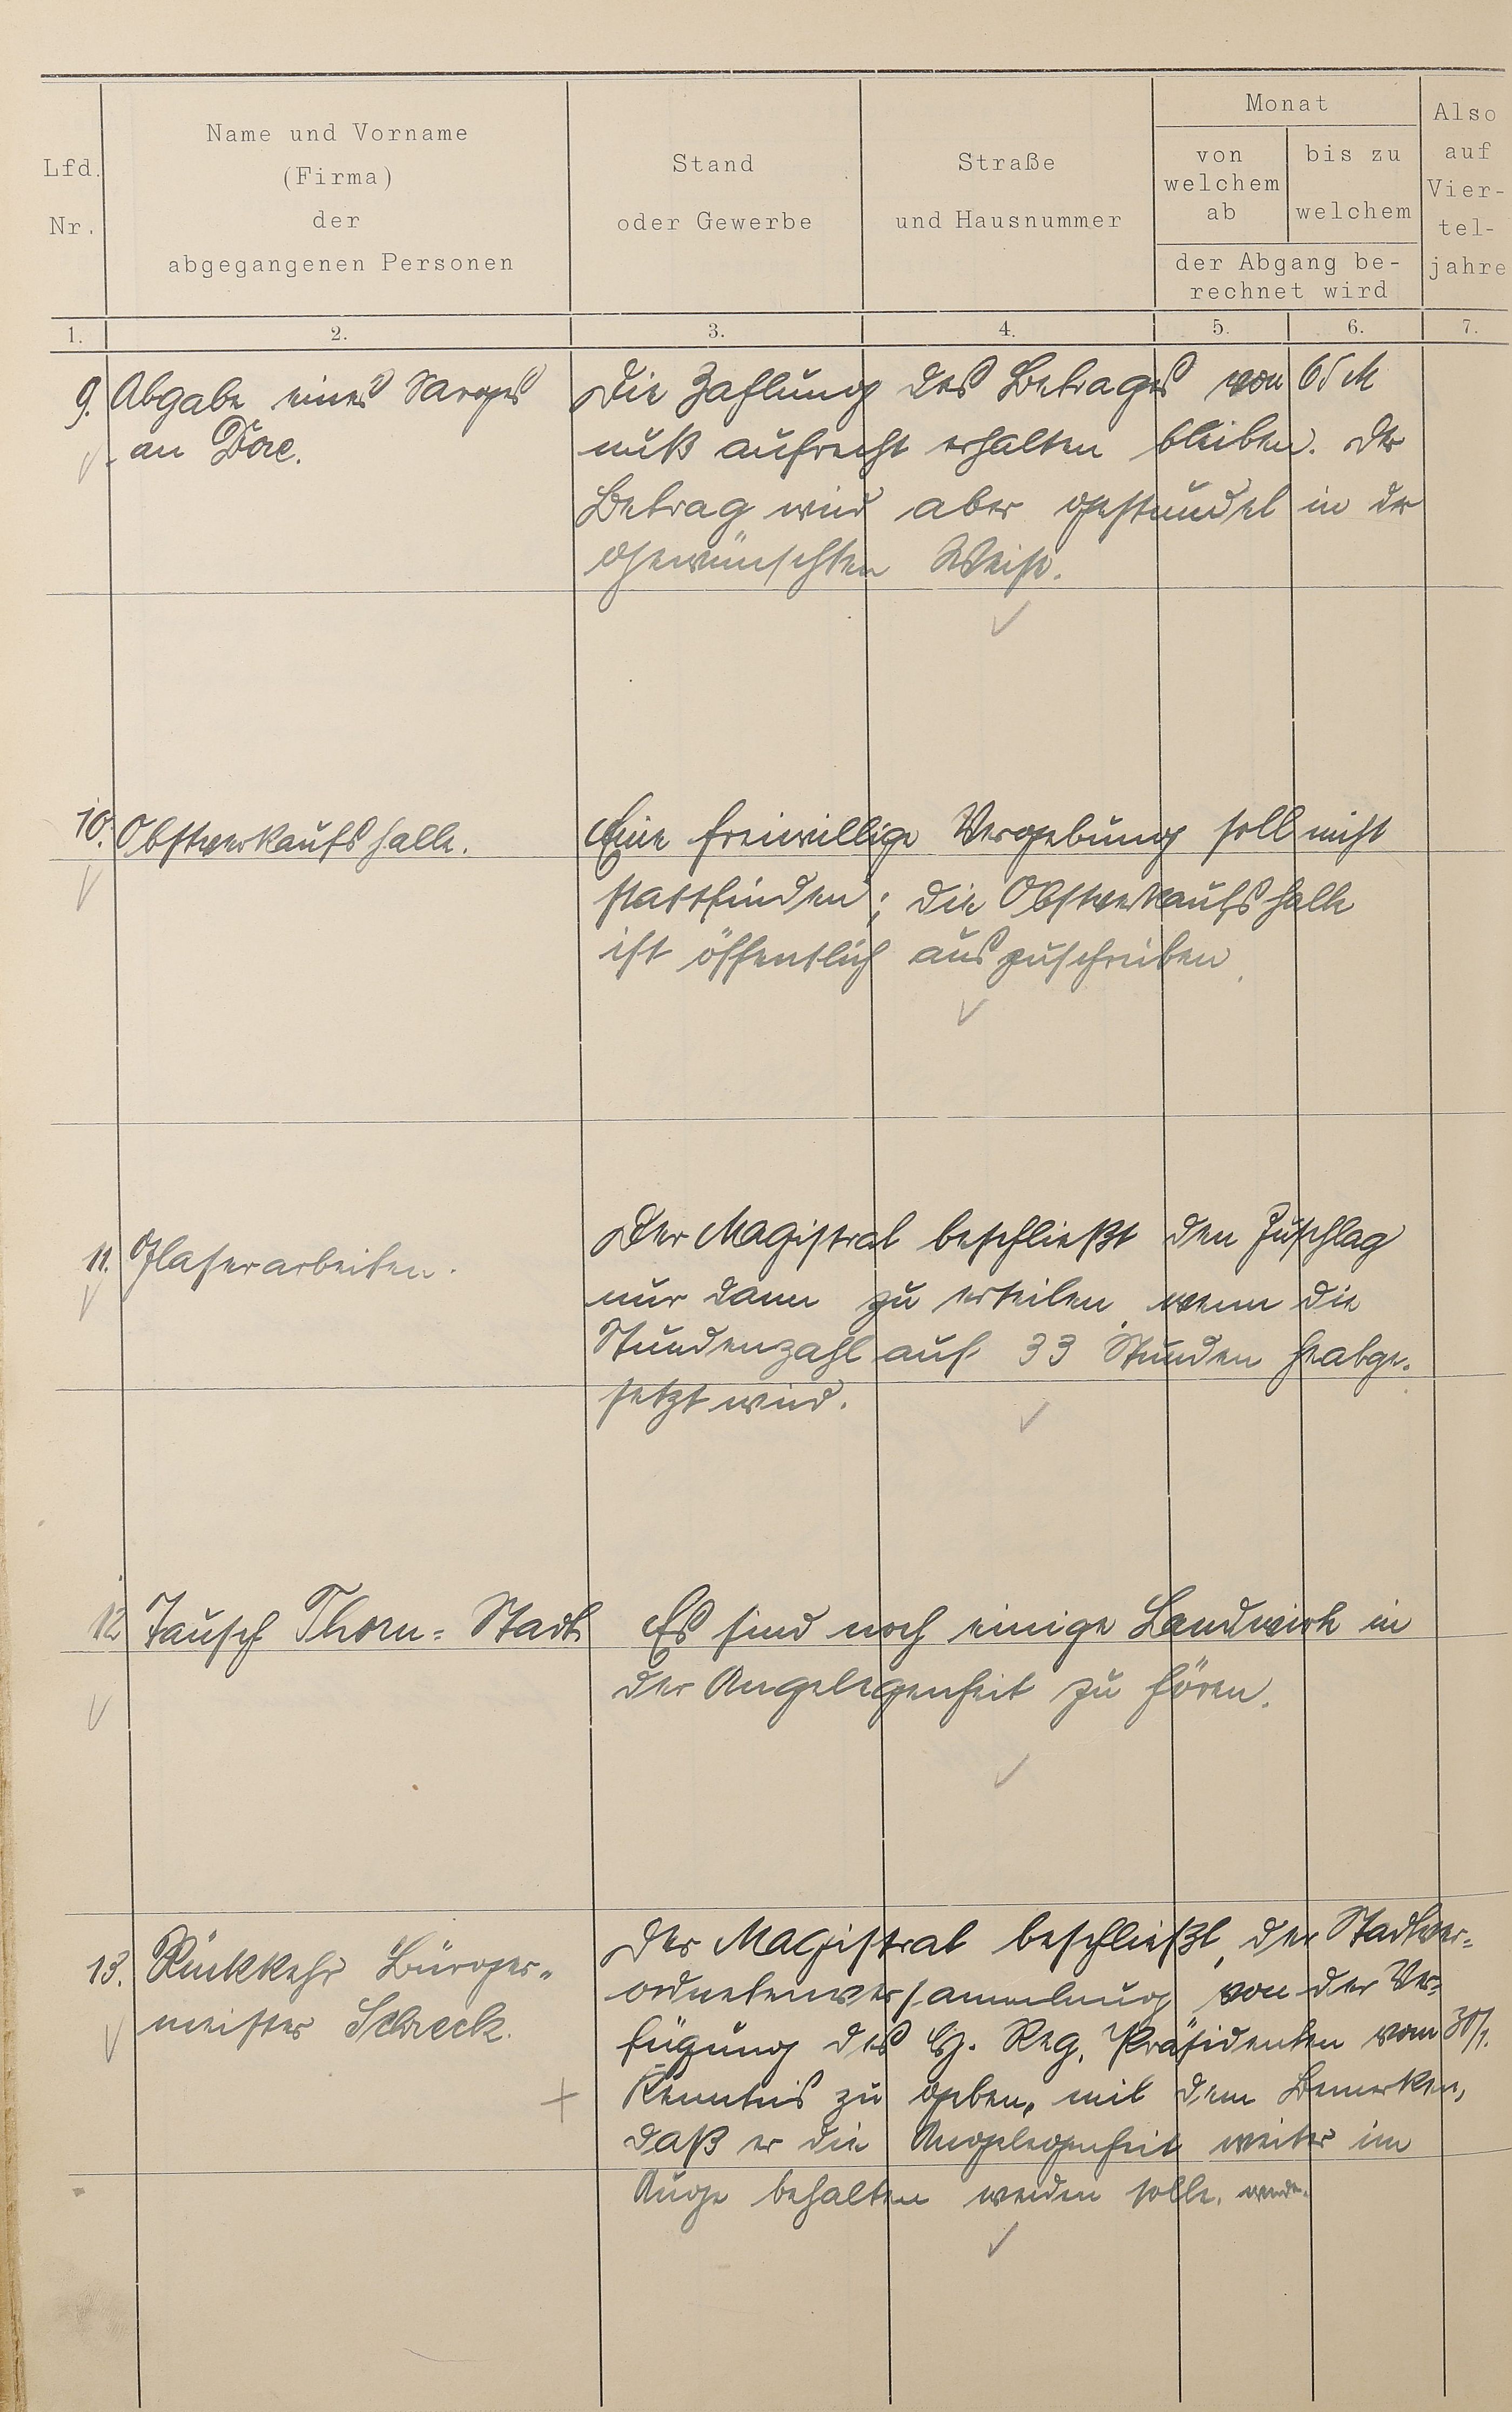 Lfd.
Nr.
Name und Vorname
(Firma)
der
abgegangenen Personen
Stand
oder Gewerbe
Straße
und Hausnummer
Monat
von
welchem
ab
bis zu
welchem
der Abgang be-
rechnet wird
Also
auf
Vier-
tel-
jahre
1. 2. 3. 4. 5. 6. 7.
9. Abgabe eines Sarges
an
Die Zahlung des Betrages von 65 M
muß aufrecht erhalten bleiben. Der
Betrag wird aber gestundet in der
gewünschten Weise.
10. Obstverkaufshalle.
Eine freiwillige Vergebung soll nicht
stattfinden; die Obstverkaufshalle
ist öffentlich auszuschreiben.
11. Glaserarbeiten.
Der Magistrat beschließt den Zuschlag
nur dann zu erteilen, wenn die
Stundenzahl auf 33 Stunden heabge-
setzt wird.
12 Tausch Thorn = Stadt
Es sind noch einige Landwirte in
der Angelegenheit zu hören.
13. Rückkehr Bürger-
meister Schreck.
Der Magistrat beschließt, der Stadtver-
ordnetenversammlung von der Ver-
fügung des H. Reg. Präsidenten vom 30/1.
Kenntnis zu geben, mit dem Bemerken,
daß er die Angelegenheit weiter im
Auge behalten werden solle. werde.